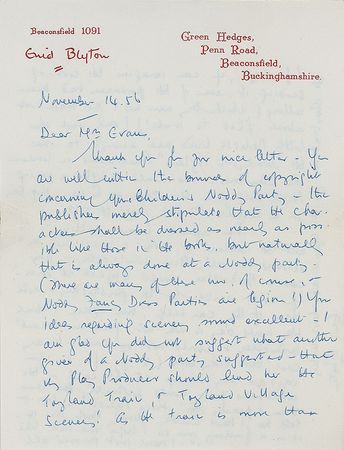 Beaconsfield 1091
Enid Blyton
Green Hedges,
Penn Road,
Beaconsfield,
Buckinghamshire.
November 14. 56
Dear Mrs Evans,
Thank you for your nice letter - You
are well within the bounds of copyright
concerning your Children's Noddy Party - the
publishers merely stipulate that the char-
acters shall be dressed as nearly as poss-
ible like those in the books, but naturally
that is always done at a Noddy party
(There are many of these now, of course, &
Noddy Fancy Dress Parties are legion!) Your
ideas regarding scenery sound excellent - I
am glad you did not suggest what another
giver of a Noddy party suggested - that
my Play Producer should lend her the
Toyland Train, & Toyland Village
Scenery! As the train is more than